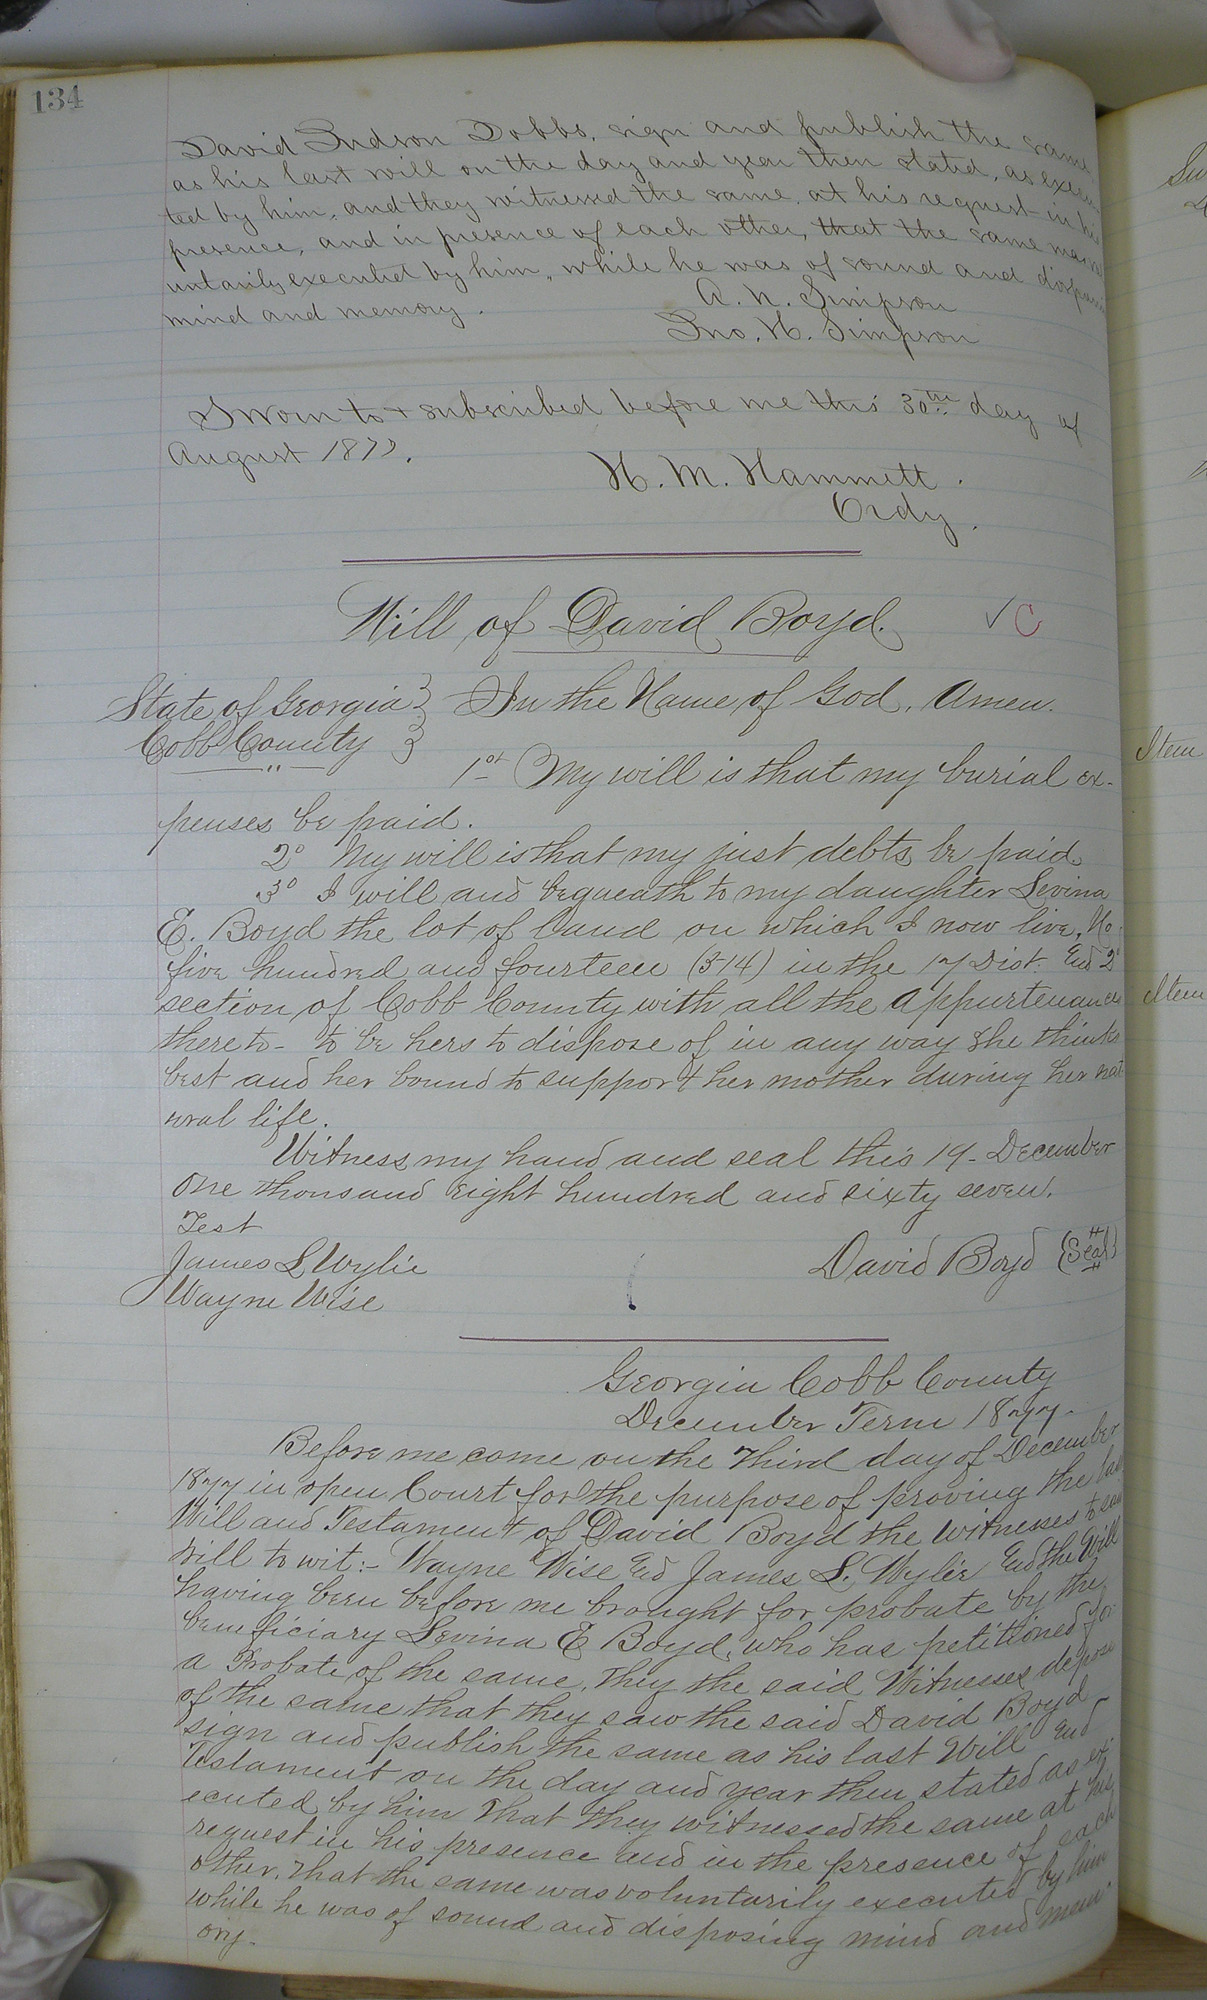 134
David Judson Dobbs, sign and publish the same
as his last will on the day and year then stated, as execu-
ted by him, and they witnessed the same, at his request in his
presence, and in presence of each other, that the same was vol
untarily executed by him, while he was of sound and disposing
mind and memory.
A. N. Simpson
Jno. N. Simpson
Sworn to & subscribed before me this 30th day of
August 1877.
H. M. Hammett.
Ordy.
Will of David Boyd. ✓ C
State of Georgia } In the Name of God, Amen.
Cobb County }
1st My will is that my burial ex-
penses be paid.
2d My will is that my just debts be paid
3d I will and bequeath to my daughter Levina
E. Boyd the lot of land on which I now live, No
five hundred and fourteen (514) in the 17 Dist. and 2d
section of Cobb County with all the appurtenances
thereto - to be hers to dispose of in any way she thinks
best and her bound to support her mother during her nat
ural life.
Witness my hand and seal this 19 - December
One thousand eight hundred and sixty seven.
Test
James L Wylie
David Boyd (Seal)
Wayne Wise
Georgia Cobb County
December Term 1877 -
Before me come on the Third day of December
1877 in open Court for the purpose of proving the last
Will and Testament of David Boyd the witnesses to said
will to wit:- Wayne Wise and James L. Wylie and the Will
having been before me brought for probate by the
beneficiary Levina E Boyd, who has petitioned for
a Probate of the same. They the said Witnesses depose
of the same that they saw the said David Boyd
sign and publish the same as his last Will and
Testament on the day and year then stated as ex-
ecuted by him That they witnessed the same at his
request in his presence and in the presence of each
other, that the same was voluntarily executed by him
while he was of sound and disposing mind and mem-
ory.
Item
Item